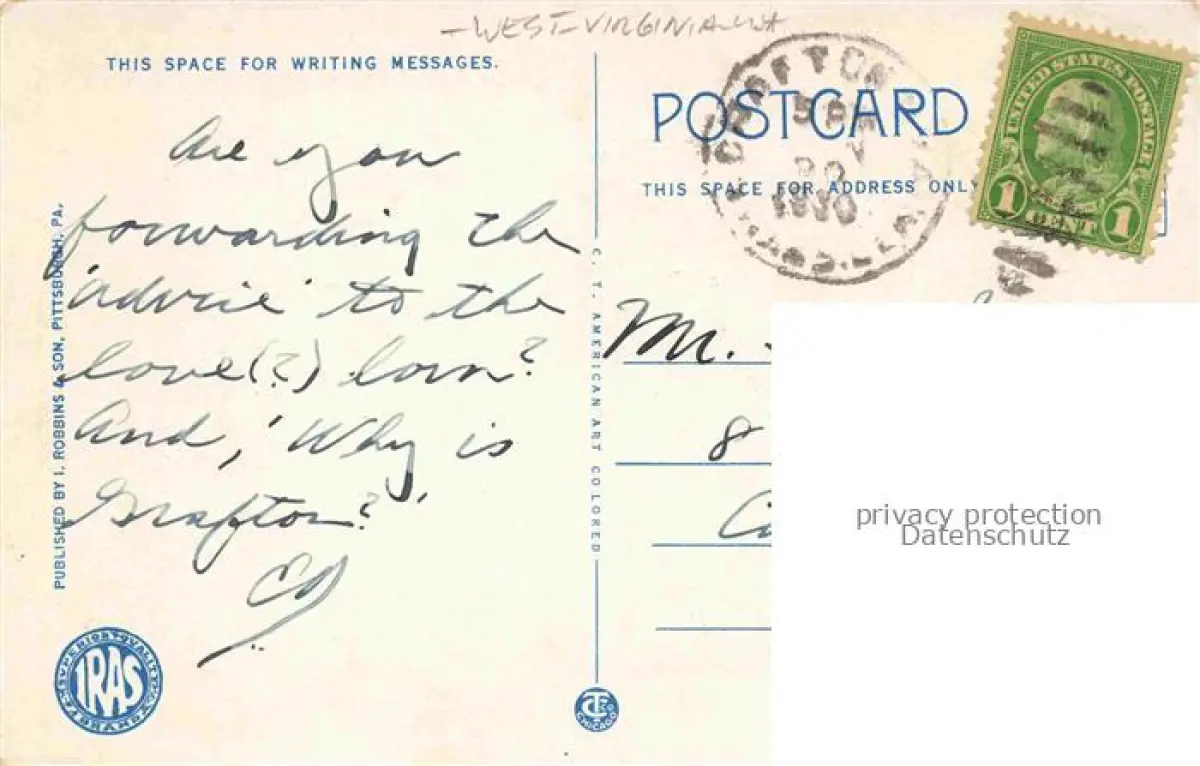 -WEST-VIRGINIA-
THIS SPACE FOR WRITING MESSAGES.
Are you
forwarding the
'advice' to the
love(?) lorn?
And, 'Why is
Grafton?'
Ed
PUBLISHED BY I. ROBBINS & SON, PITTSBURGH, PA.
IRAS
C. T. AMERICAN ART COLORED
CHICAGO
POSTCARD
THIS SPACE FOR ADDRESS ONLY
GRAFTON
1930
UNITED STATES POSTAGE
1 CENT 1
Mr.
8
privacy protection
Datenschutz